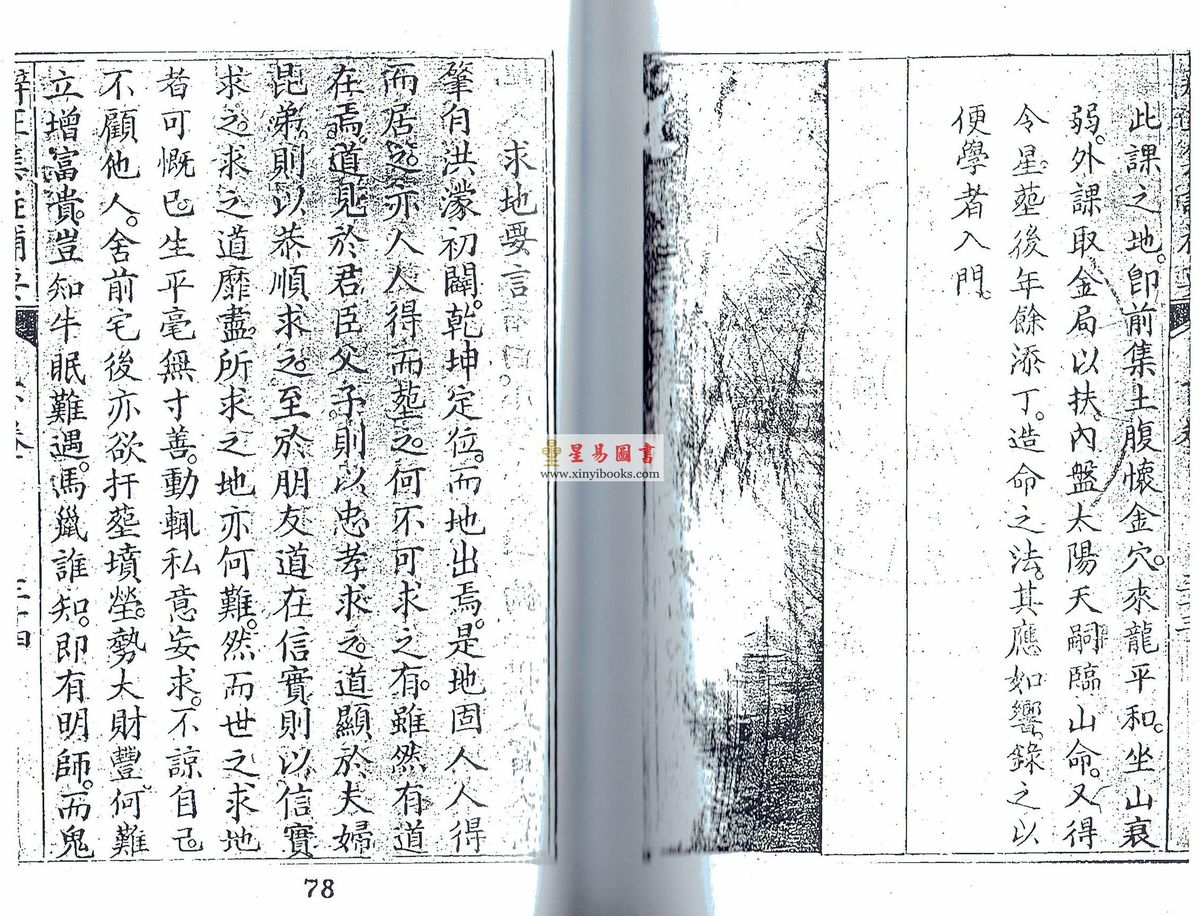 此課之地。卽前集土腹懷金穴。來龍平和。坐山衰
弱。外課取金局以扶。內盤太陽天嗣臨山命。又得
令星。塟後年餘添丁。造命之法。其應如響。錄之以
便學者入門。
求地要言
肇自洪濛初闢。乾坤定位。而地出焉。是地固人人得
而居之。亦人人得而塟之。何不可求之有。雖然有道
在焉。道見於君臣父子。則以忠孝求之。道顯於夫婦
昆弟。則以恭順求之。至於朋友道在信實。則以信實
求之。求之之道靡盡。所求之地亦何難。然而世之求地
者可慨已。生平毫無寸善。動輒私意妄求。不諒自己
不顧他人。舍前宅後亦欲扞塟墳塋。勢大財豐何難
立增富貴。豈知牛眠難遇。馬鬣誰知。即有明師。而鬼
三十四
78
星易圖書
www.xinyibooks.com